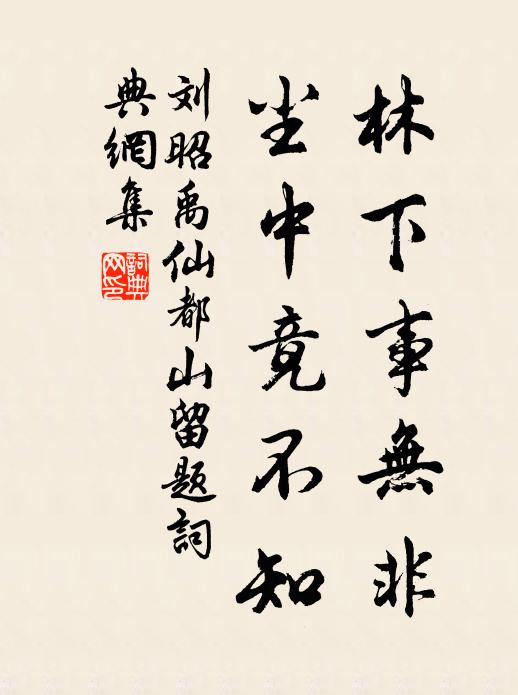 林下事無非
尘中竟不知
刘昭禹仙都山留题詞
典網集
詞典网印